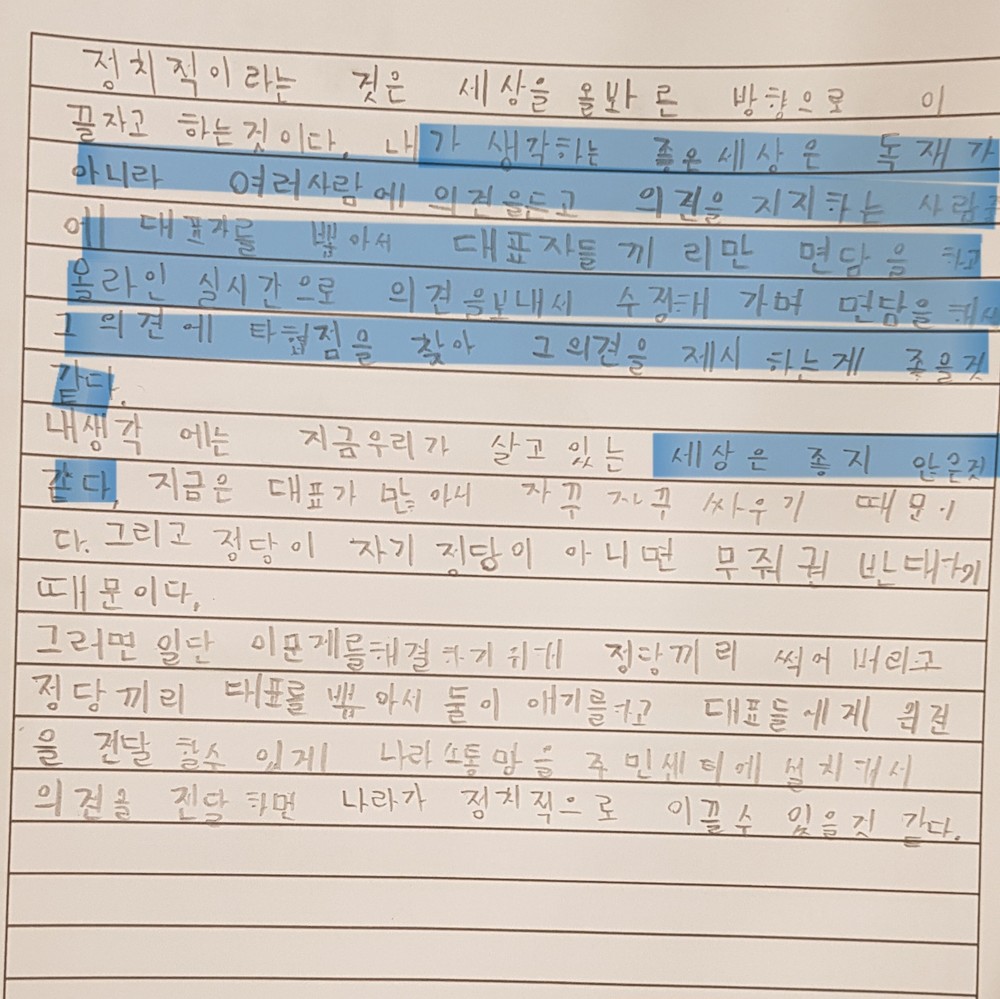 정치적이라는 것은 세상을 올바른 방향으로 이
끌자고 하는것이다. 내가 생각하는 좋은세상은 독재가
아니라 여러사람에 의견을듣고 의견을 지지하는 사람들
에 대표자를 뽑아서 대표자들끼리만 면담을 하고
올라인 실시간으로 의견을보내서 수정해 가며 면담을 해서
그 의견에 타협점을 찾아 그의견을 제시 하는게 좋을것
같다.
내생각 에는 지금우리가 살고 있는 세상은 좋지 안은것
같다. 지금은 대표가 많아서 자꾸 자꾸 싸우기 때문이
다. 그리고 정당이 자기 정당이 아니면 무줘권 반대하기
때문이다.
그러면 일단 이문제를해결하기위해 정당끼리 썩어 버리고
정당끼리 대표를 뽑아서 둘이 얘기를하고 대표들에게 의견
을 전달 할수 있게 나라소통망을 주민센터에 설치해서
의견을 전달하면 나라가 정치적으로 이끌수 있을것 같다.